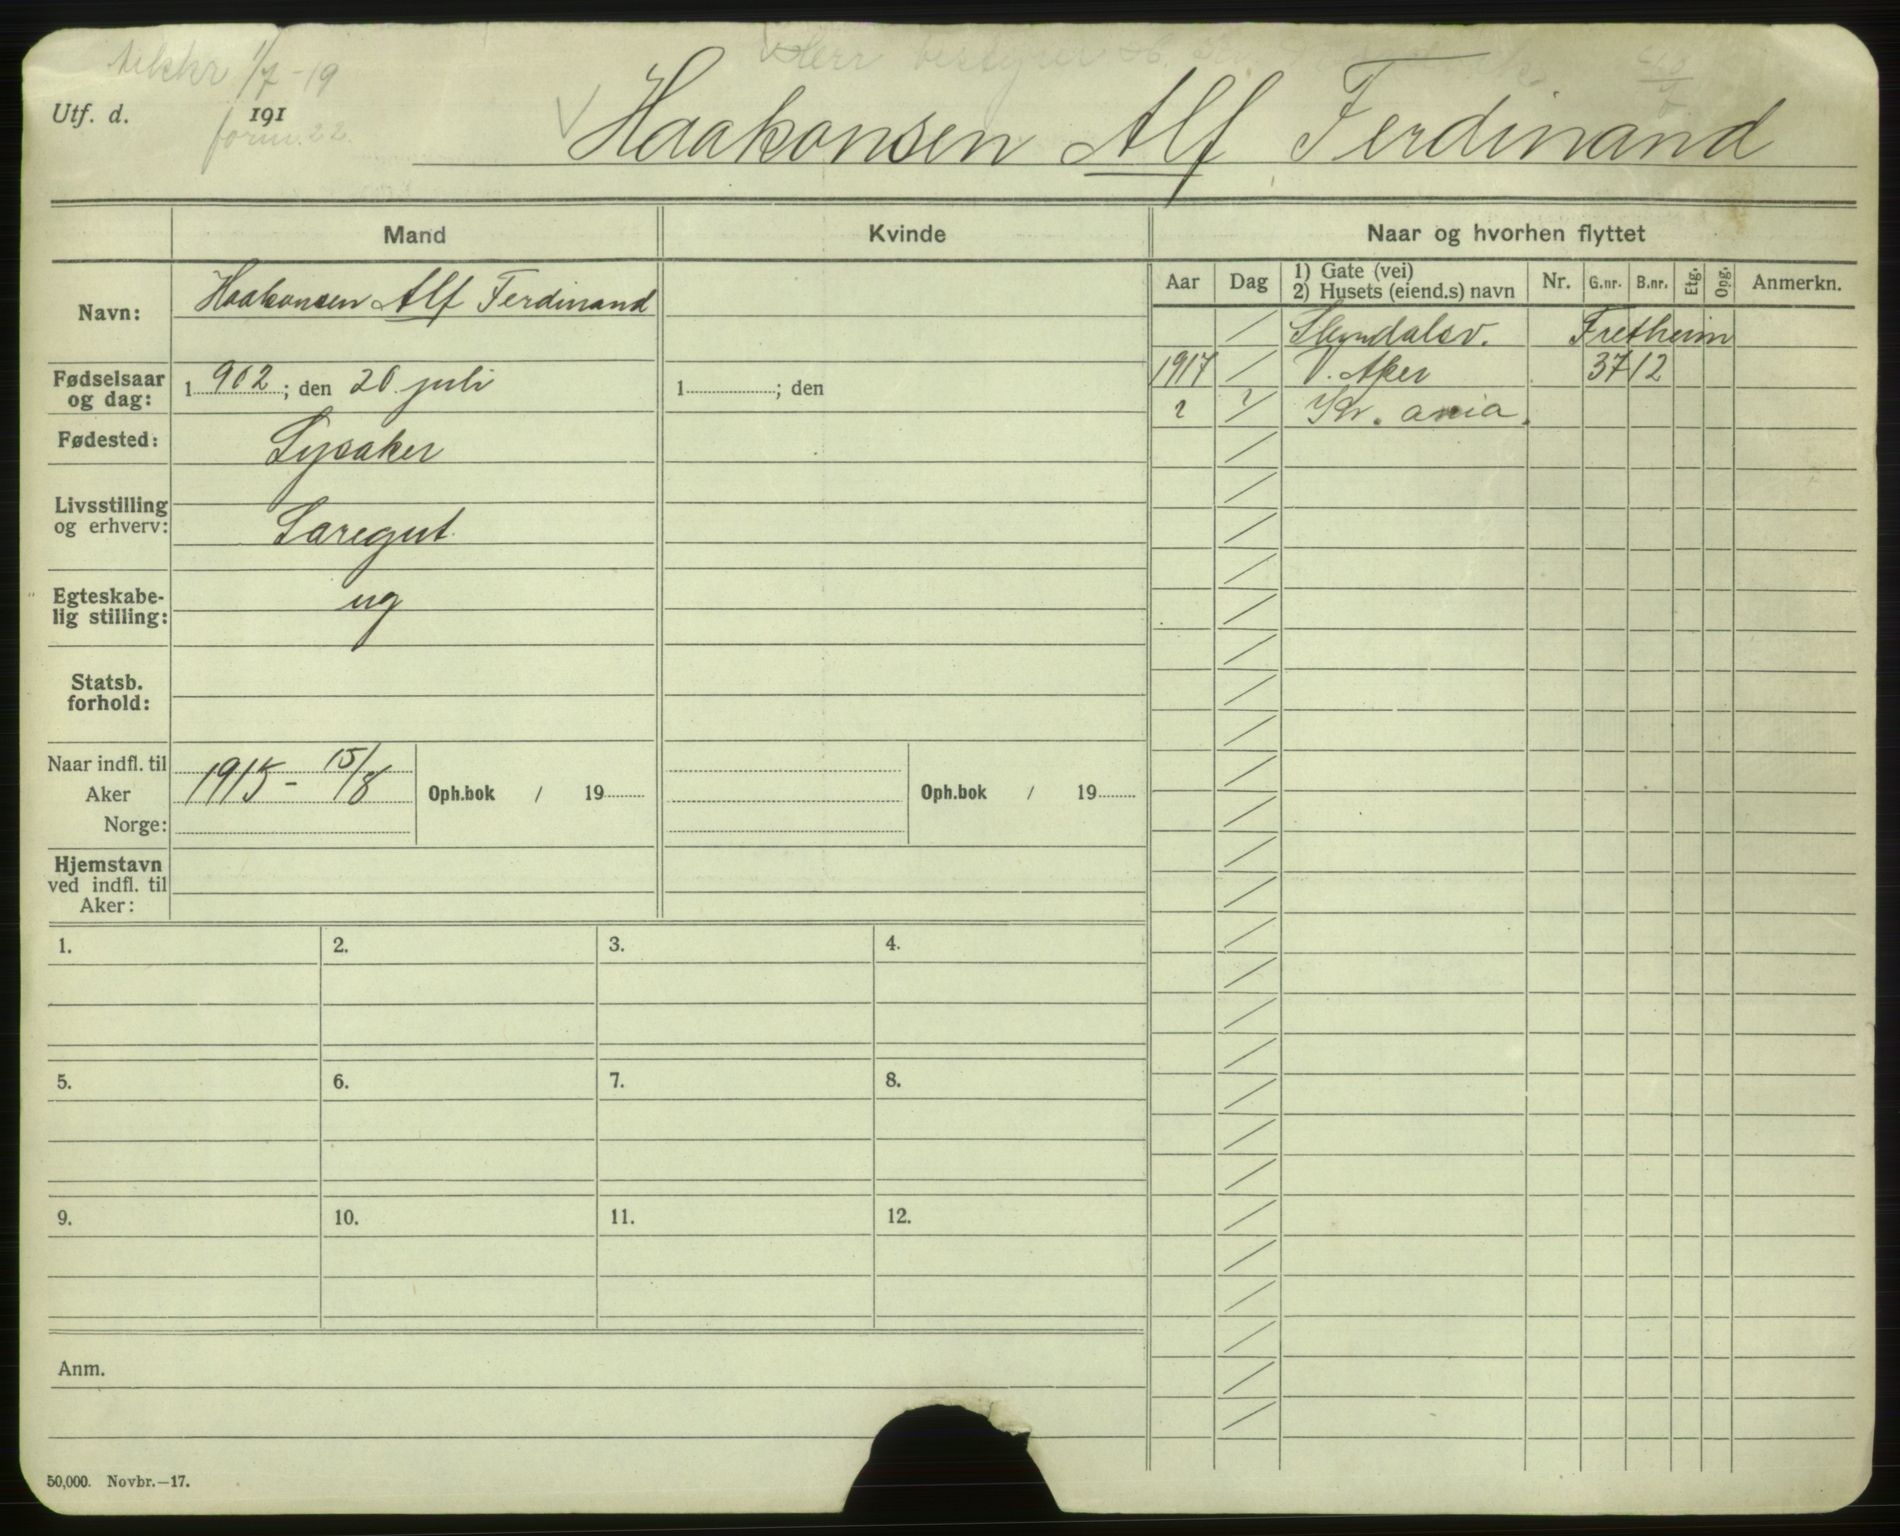 1/7-19
Utf. d. 191
form. 22.
V Haakonsen Alf Ferdinand
Mand Kvinde Naar og hvorhen flyttet
Aar Dag 1) Gate (vei) 2) Husets (eiend.s) navn Nr. G.nr. B.nr. Etg. Opg. Anmerkn.
Navn: Haakonsen Alf Ferdinand
Fretheim
1917 V. Aker 37 12
? ? Kr.ania.
Fødselsaar og dag: 1902; den 20 juli 1 ; den
Fødested: Lysaker
Livsstilling og erhverv:
Egteskabe-
lig stilling: ug
Statsb.
forhold:
Naar indfl. til
Aker
Norge: 1915 - 15/8 Oph.bok / 19 Oph.bok / 19
Hjemstavn
ved indfl. til
Aker:
1. 2. 3. 4.
5. 6. 7. 8.
9. 10. 11. 12.
Anm.
50,000. Novbr.—17.